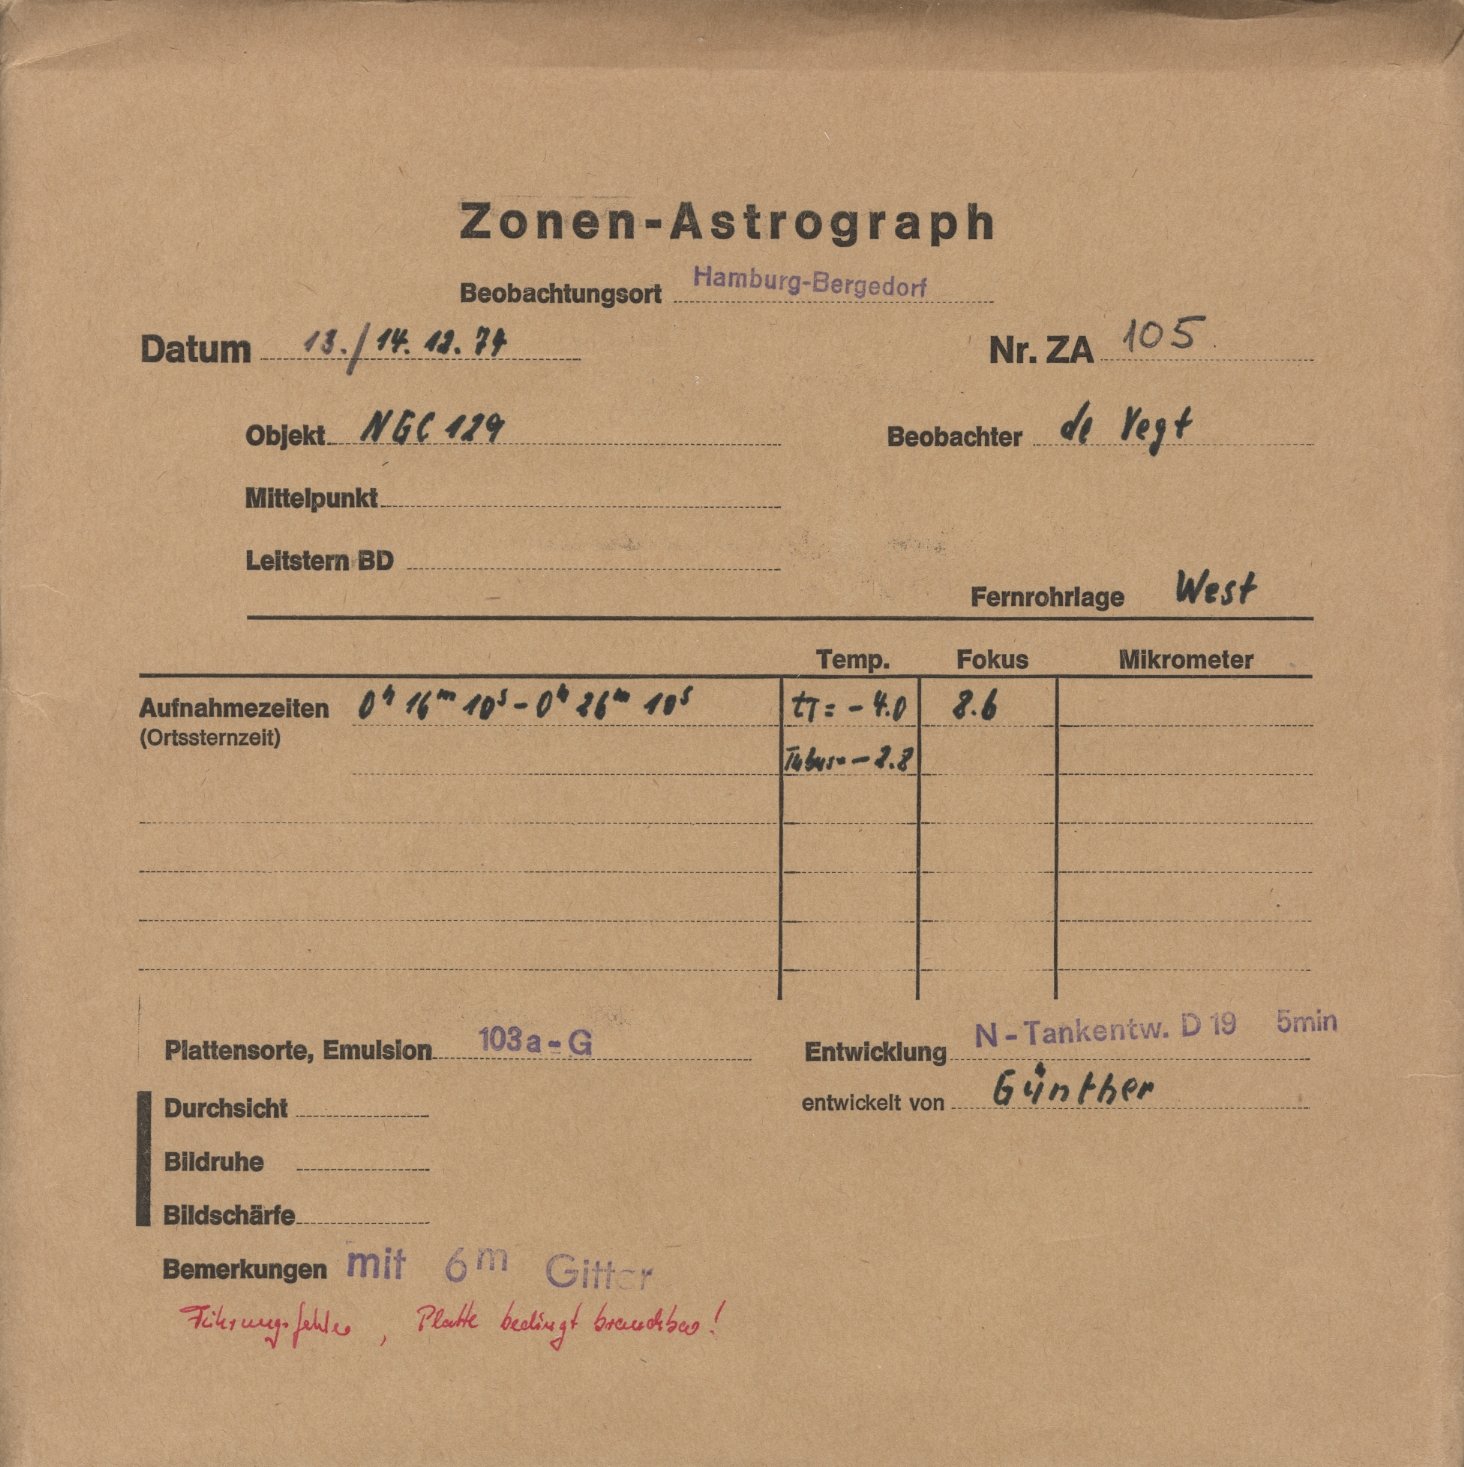 Zonen-Astrograph
Beobachtungsort Hamburg-Bergedorf
Datum 13./14. 12. 74 Nr. ZA 105
Objekt NGC 129 Beobachter de Vegt
Mittelpunkt
Leitstern BD
Fernrohrlage West
Temp. Fokus Mikrometer
Aufnahmezeiten 0h 16m 10s - 0h 26m 10s tT = - 4.0 8.6
(Ortssternzeit)
Tubus = - 2.2
Plattensorte, Emulsion 103a-G Entwicklung N-Tankentw. D 19 5min
Durchsicht entwickelt von Günther
Bildruhe
Bildschärfe
Bemerkungen mit 6m Gitter
Führungsfehler, Platte bedingt brauchbar!